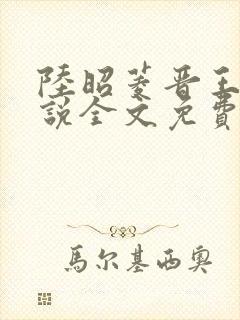 陸昭菱晋王
說全文免費
馬尔基西奥